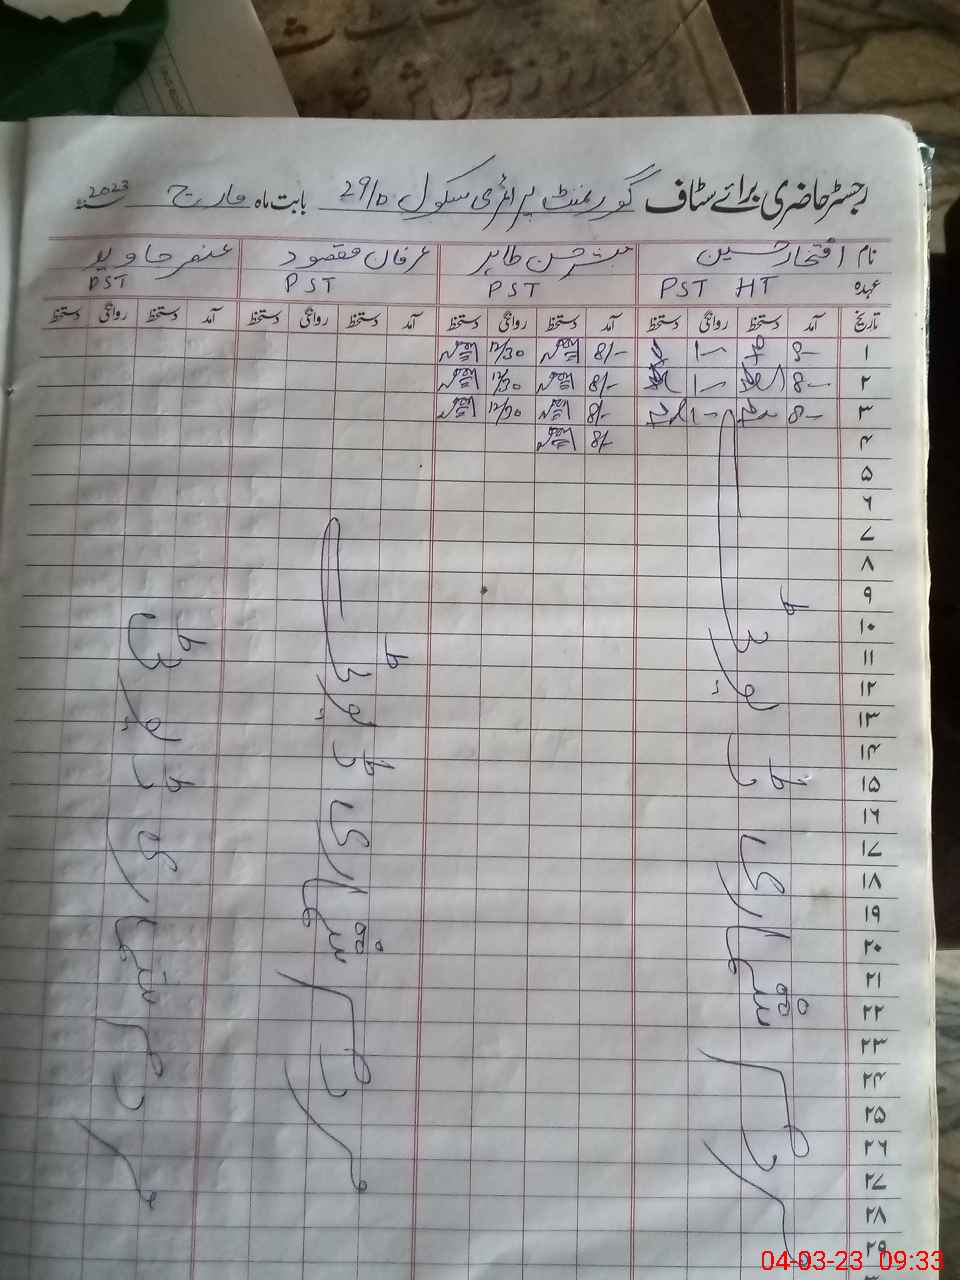 رجسٹر حاضری برائے سٹاف گورنمنٹ پرائمری سکول 29/D بابت ماہ مارچ 2023
نام افتخار حسین مبشر حسن طاہر عرفان مقصود غضنفر جاوید
عہدہ PST HT PST PST PST
تاریخ آمد دستخط روانگی دستخط آمد دستخط روانگی دستخط آمد دستخط روانگی دستخط آمد دستخط روانگی دستخط
۱ 8- 1- 8/- 12/30
۲ 8- 1- 8/- 12/30
۳ 8- 1- 8/- 12/30
۴ 8/-
۵
۶
۷
۸
۹
۱۰
۱۱
۱۲
۱۳
۱۴
۱۵
۱۶
۱۷
۱۸
۱۹
۲۰
۲۱
۲۲
۲۳
۲۴
۲۵
۲۶
۲۷
۲۸
۲۹
مردم شماری ڈیوٹی
مردم شماری ڈیوٹی
مردم شماری ڈیوٹی
04-03-23 09:33